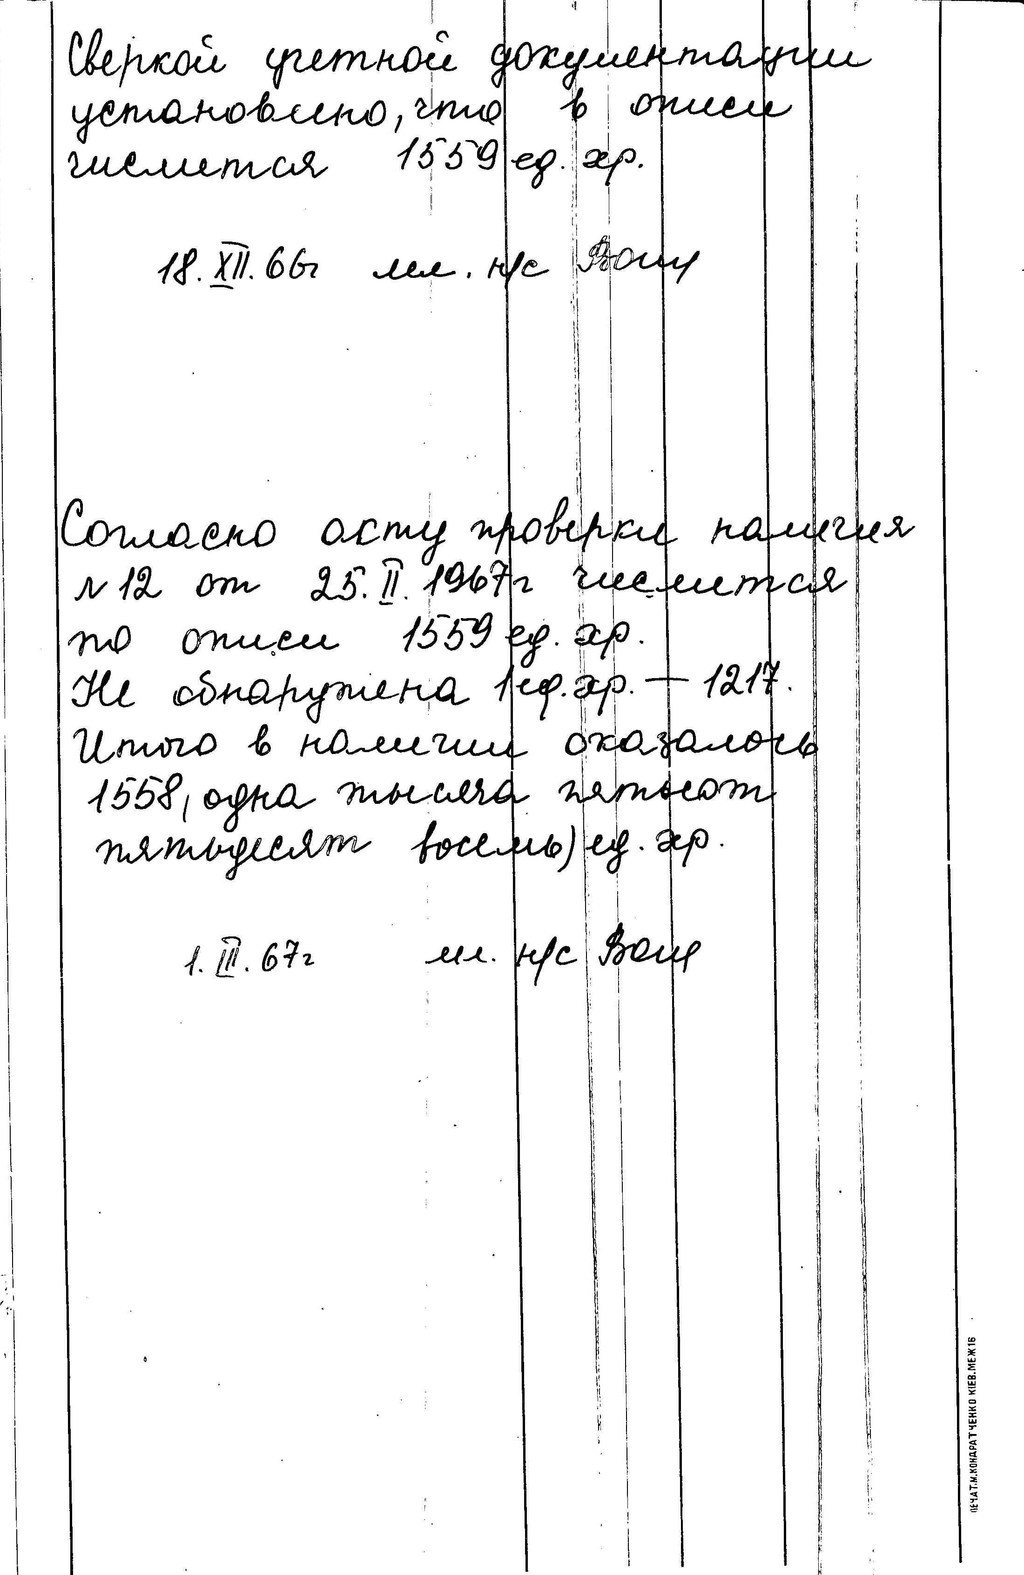 Сверкой учетной документации
установлено, что в описи
числится 1559 ед. хр.
18. XII. 66г мл. н/с
Согласно акту проверки наличия
№12 от 25. II. 1967г числится
по описи 1559 ед. хр.
Не обнаружена 1 ед. хр. — 1217.
Итого в наличии оказалось
1558, одна тысяча пятьсот
пятьдесят восемь) ед. хр.
1. III. 67г мл. н/с
ПЕЧАТ.М.КОНДРАТЧЕНКО КІЕВ.МЕЖ16